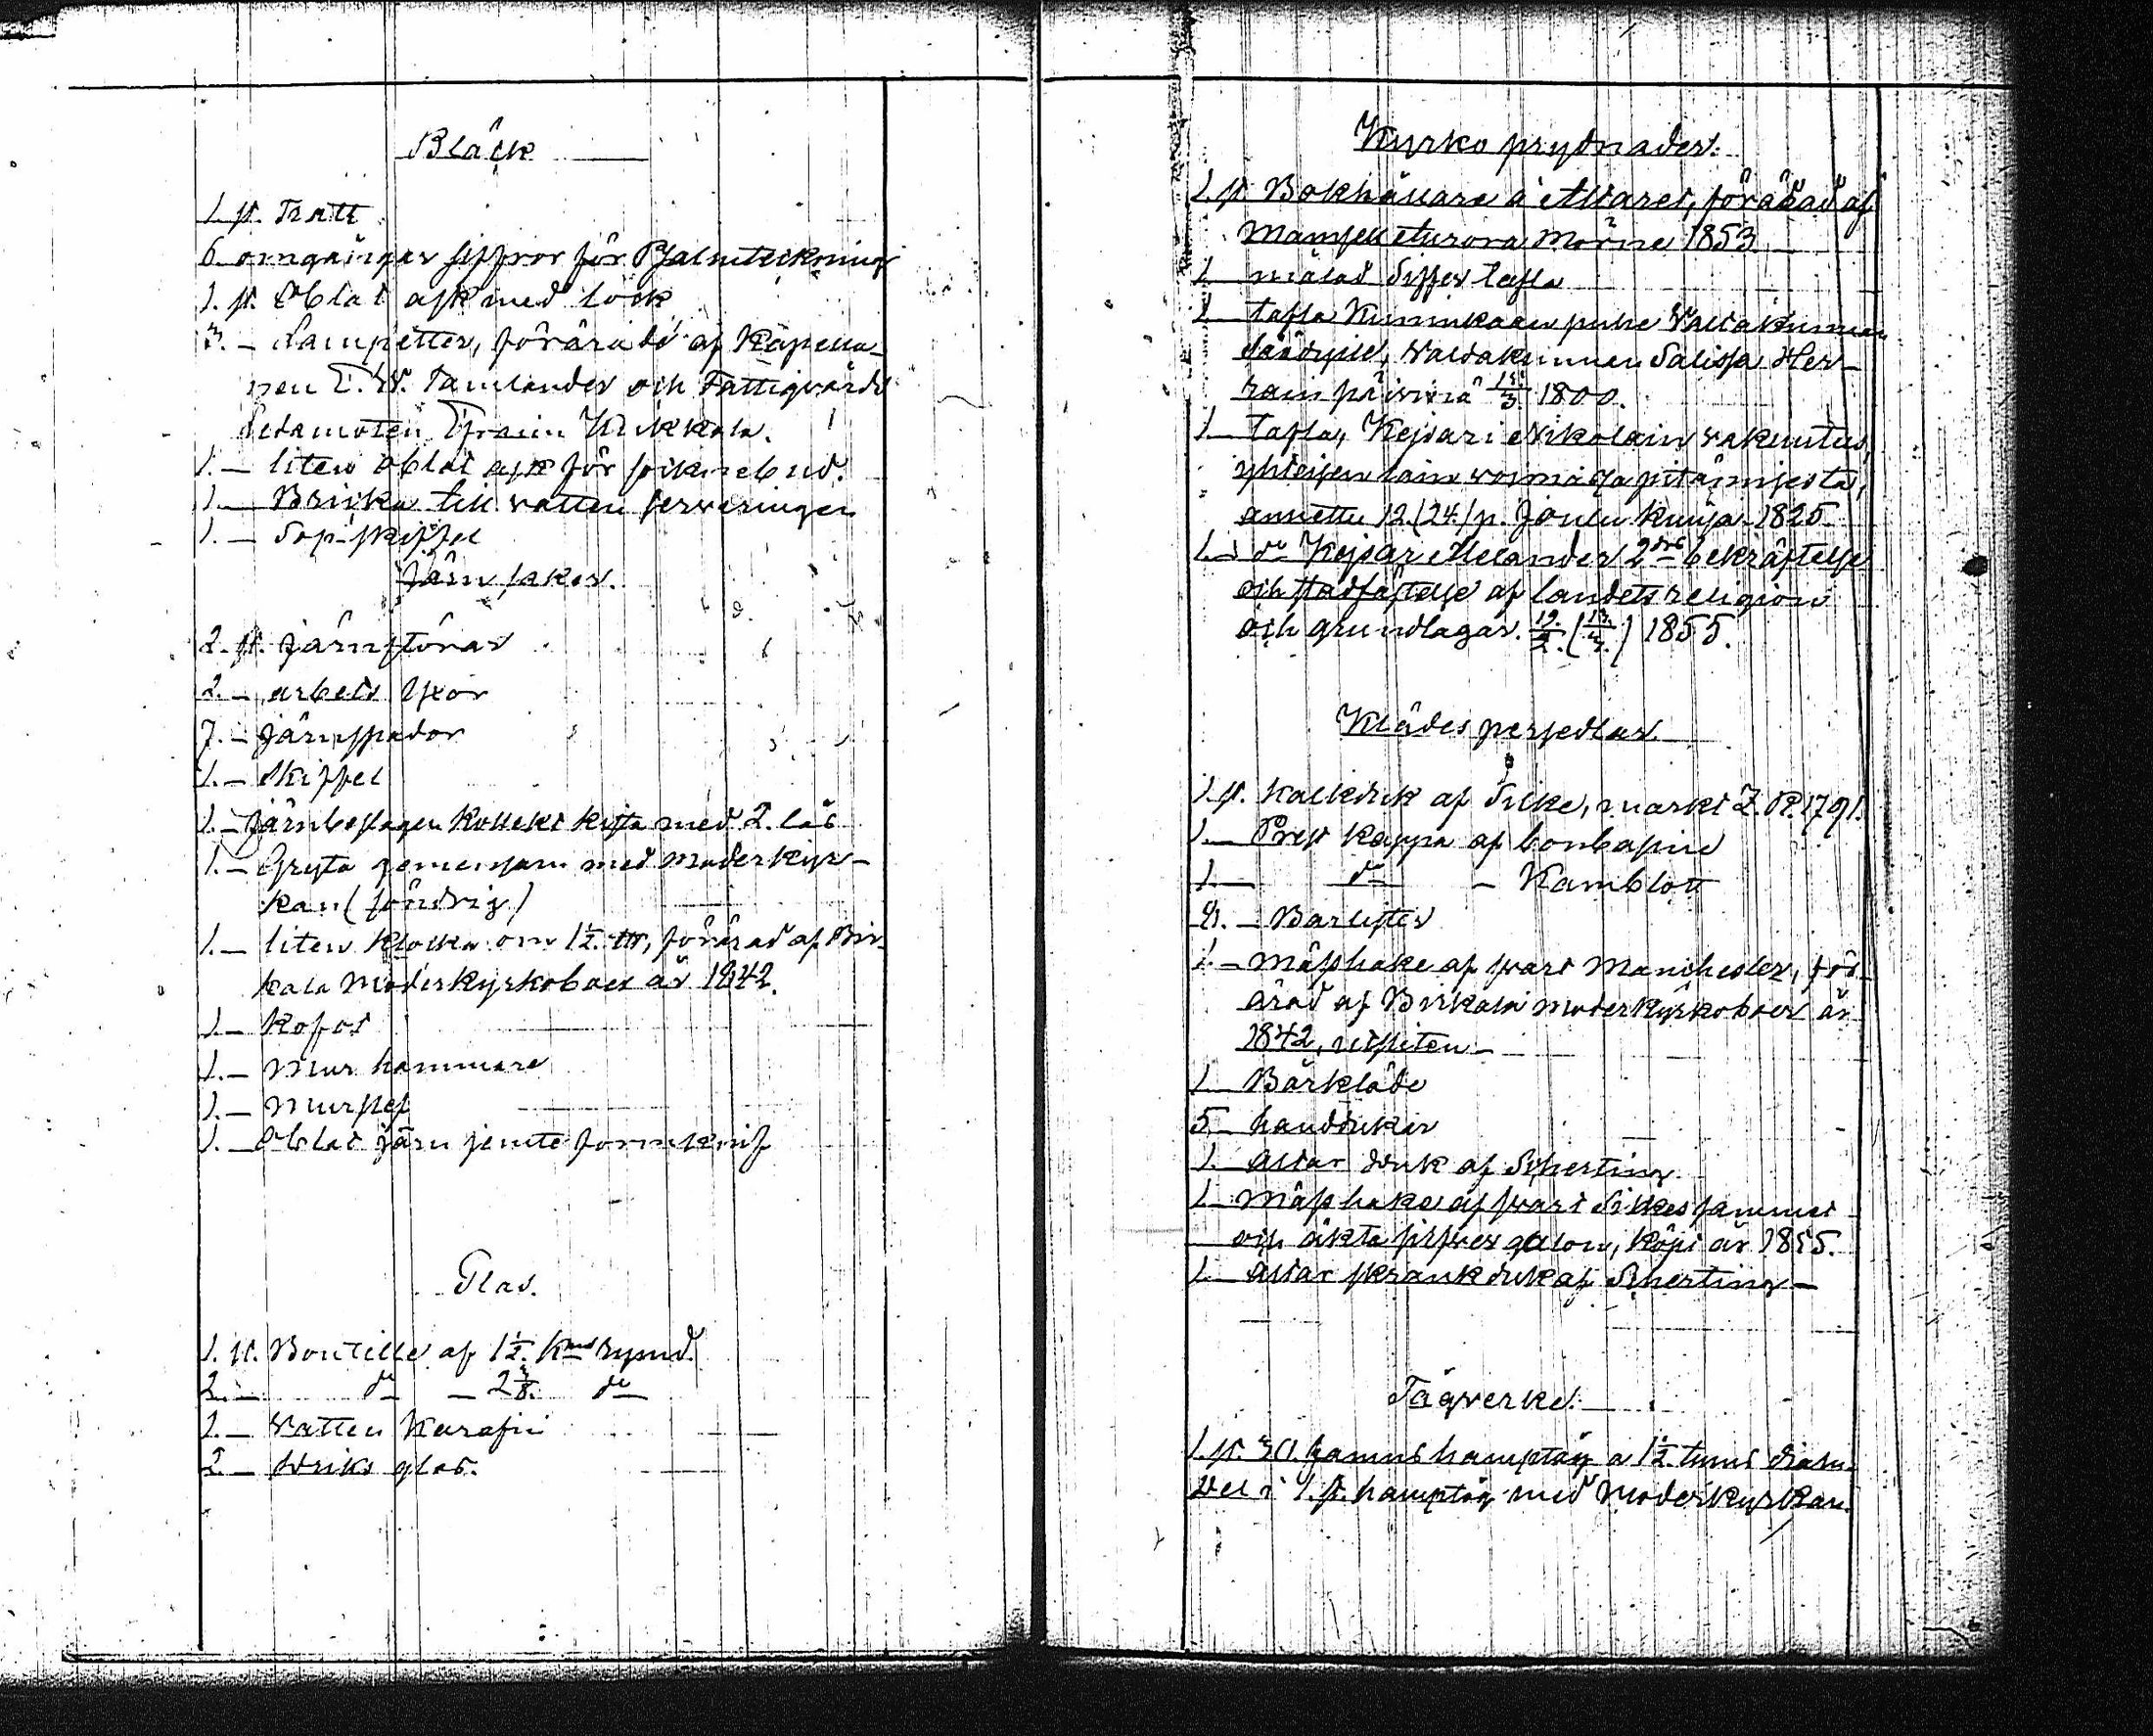 Bläck
1. st. Tratt
6 omgångar siffror för Psalmteckning
1. st. Oblat ask med lock
3. – Lampetter, förärade af Kapella-
nen E. W. Tamlander och Fattigvårds
Ledamoten Efraim Krikkala.
1. – liten oblat ask för socknebud.
1. – Bricka till vatten serveringen
1. – Sop-skiffel
Järn saker.
2. st. järnstörar
2. – arbets Yxor
7. – Järnspador
1. – Skiffel
1. – Järnbeslagen Kollekt kista med 2. lås
1. – Gryta gemensam med moderkyr-
kan (söndrig)
1. – liten klocka om 1½ ℔, förärad af Bir-
kala Moderkyrkoboer år 1842.
1. – Kofot
1. – Mur hammare
1. – Murslef
1. – Oblat järn jemte formknif
Glas.
1. st. Bouteille af 1½. Kns rymd.
2. – do – 2⅜. do
1. – Vatten Karafin
2. – driks glas.
Kyrko prydnader.
1. st. Bokhållare å Altaret, förärad af
Mamsell Aurora Mörne 1853
1 målad Siffer tafla
1 tafla Kuninkaan puhe Valtakunnan
Säädyille, Valtakunnan Salissa Her-
rain päivinä 15/3 1800.
1 Tafla, Kejsari Nikolain vakuutus,
yhteisen lain voimassa pitämisestä,
annettu 12.(24.) p. Joulu kuusa 1825
1 do Kejsar Alexander 2dres bekräftelse
och stadfästelse af landets religion
och grundlagar. 19/2. (/3.) 1855.
Klädes persedlar
1. st. Kalkduk af Silke, märkt Z. P. 1791.
1. – Prest kappa af bombasin
1 – do – Kamblott
4. – Barlifter
1 – Mässhake af svart Manchester, för-
ärad af Birkala moderkyrkoboer år
1842, utsliten –
1 Bårkläde
5 handdukar
1. Altar duk af Scherting
1 Mässhake af svart Silkes sammet
och äkta silfver galon, köpt år 1855.
1 Altar skrank duk af Scherting –
Tågverke.
1. st. 30. famns hamptåg a 1½ tums diam.
Del i 1. st. hamptåg med Moderkyrkan.